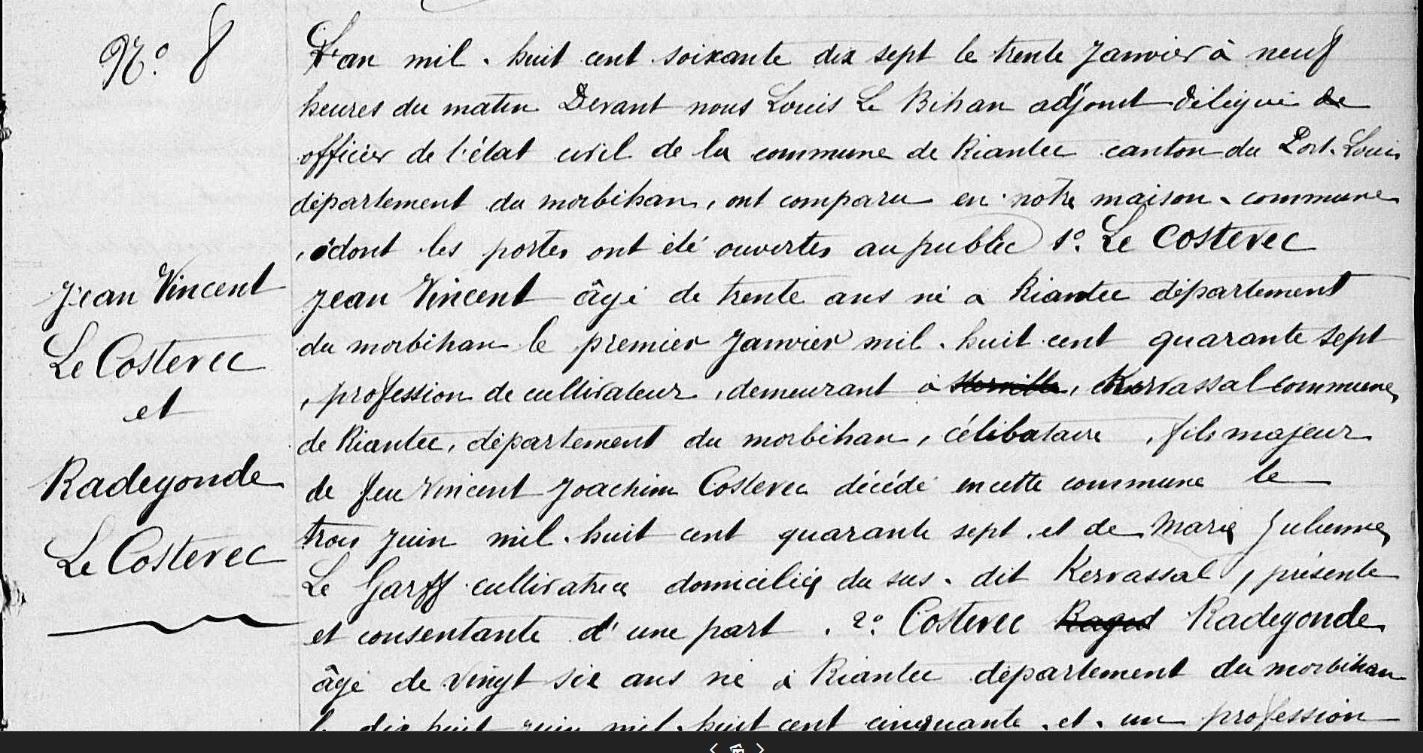 N° 8
L'an mil huit cent soixante dix sept le trente Janvier à neuf
heures du matin Devant nous Louis Le Bihan adjoint délégué de
officier de l'état civil de la commune de Riantec canton du Port-Louis
département du morbihan, ont comparu en notre maison commune
dont les portes ont été ouvertes au public 1° Le Costevec
Jean Vincent
Le Costevec
et
Radegonde
Le Costevec
Jean Vincent âgé de trente ans né à Riantec département
du morbihan le premier Janvier mil huit cent quarante sept
, profession de cultivateur, demeurant à Kervassal commune
de Riantec, département du morbihan, célibataire, fils majeur
de feu Vincent Joachim Costevec décédé en cette commune le
trois Juin mil huit cent quarante sept et de Marie Julienne
Le Garff cultivatrice domiciliée du sus-dit Kervassal, présente
et consentante d'une part. 2° Costevec Radegonde
âgé de vingt six ans né à Riantec département du morbihan
le dix huit juin mil huit cent cinquante et un profession